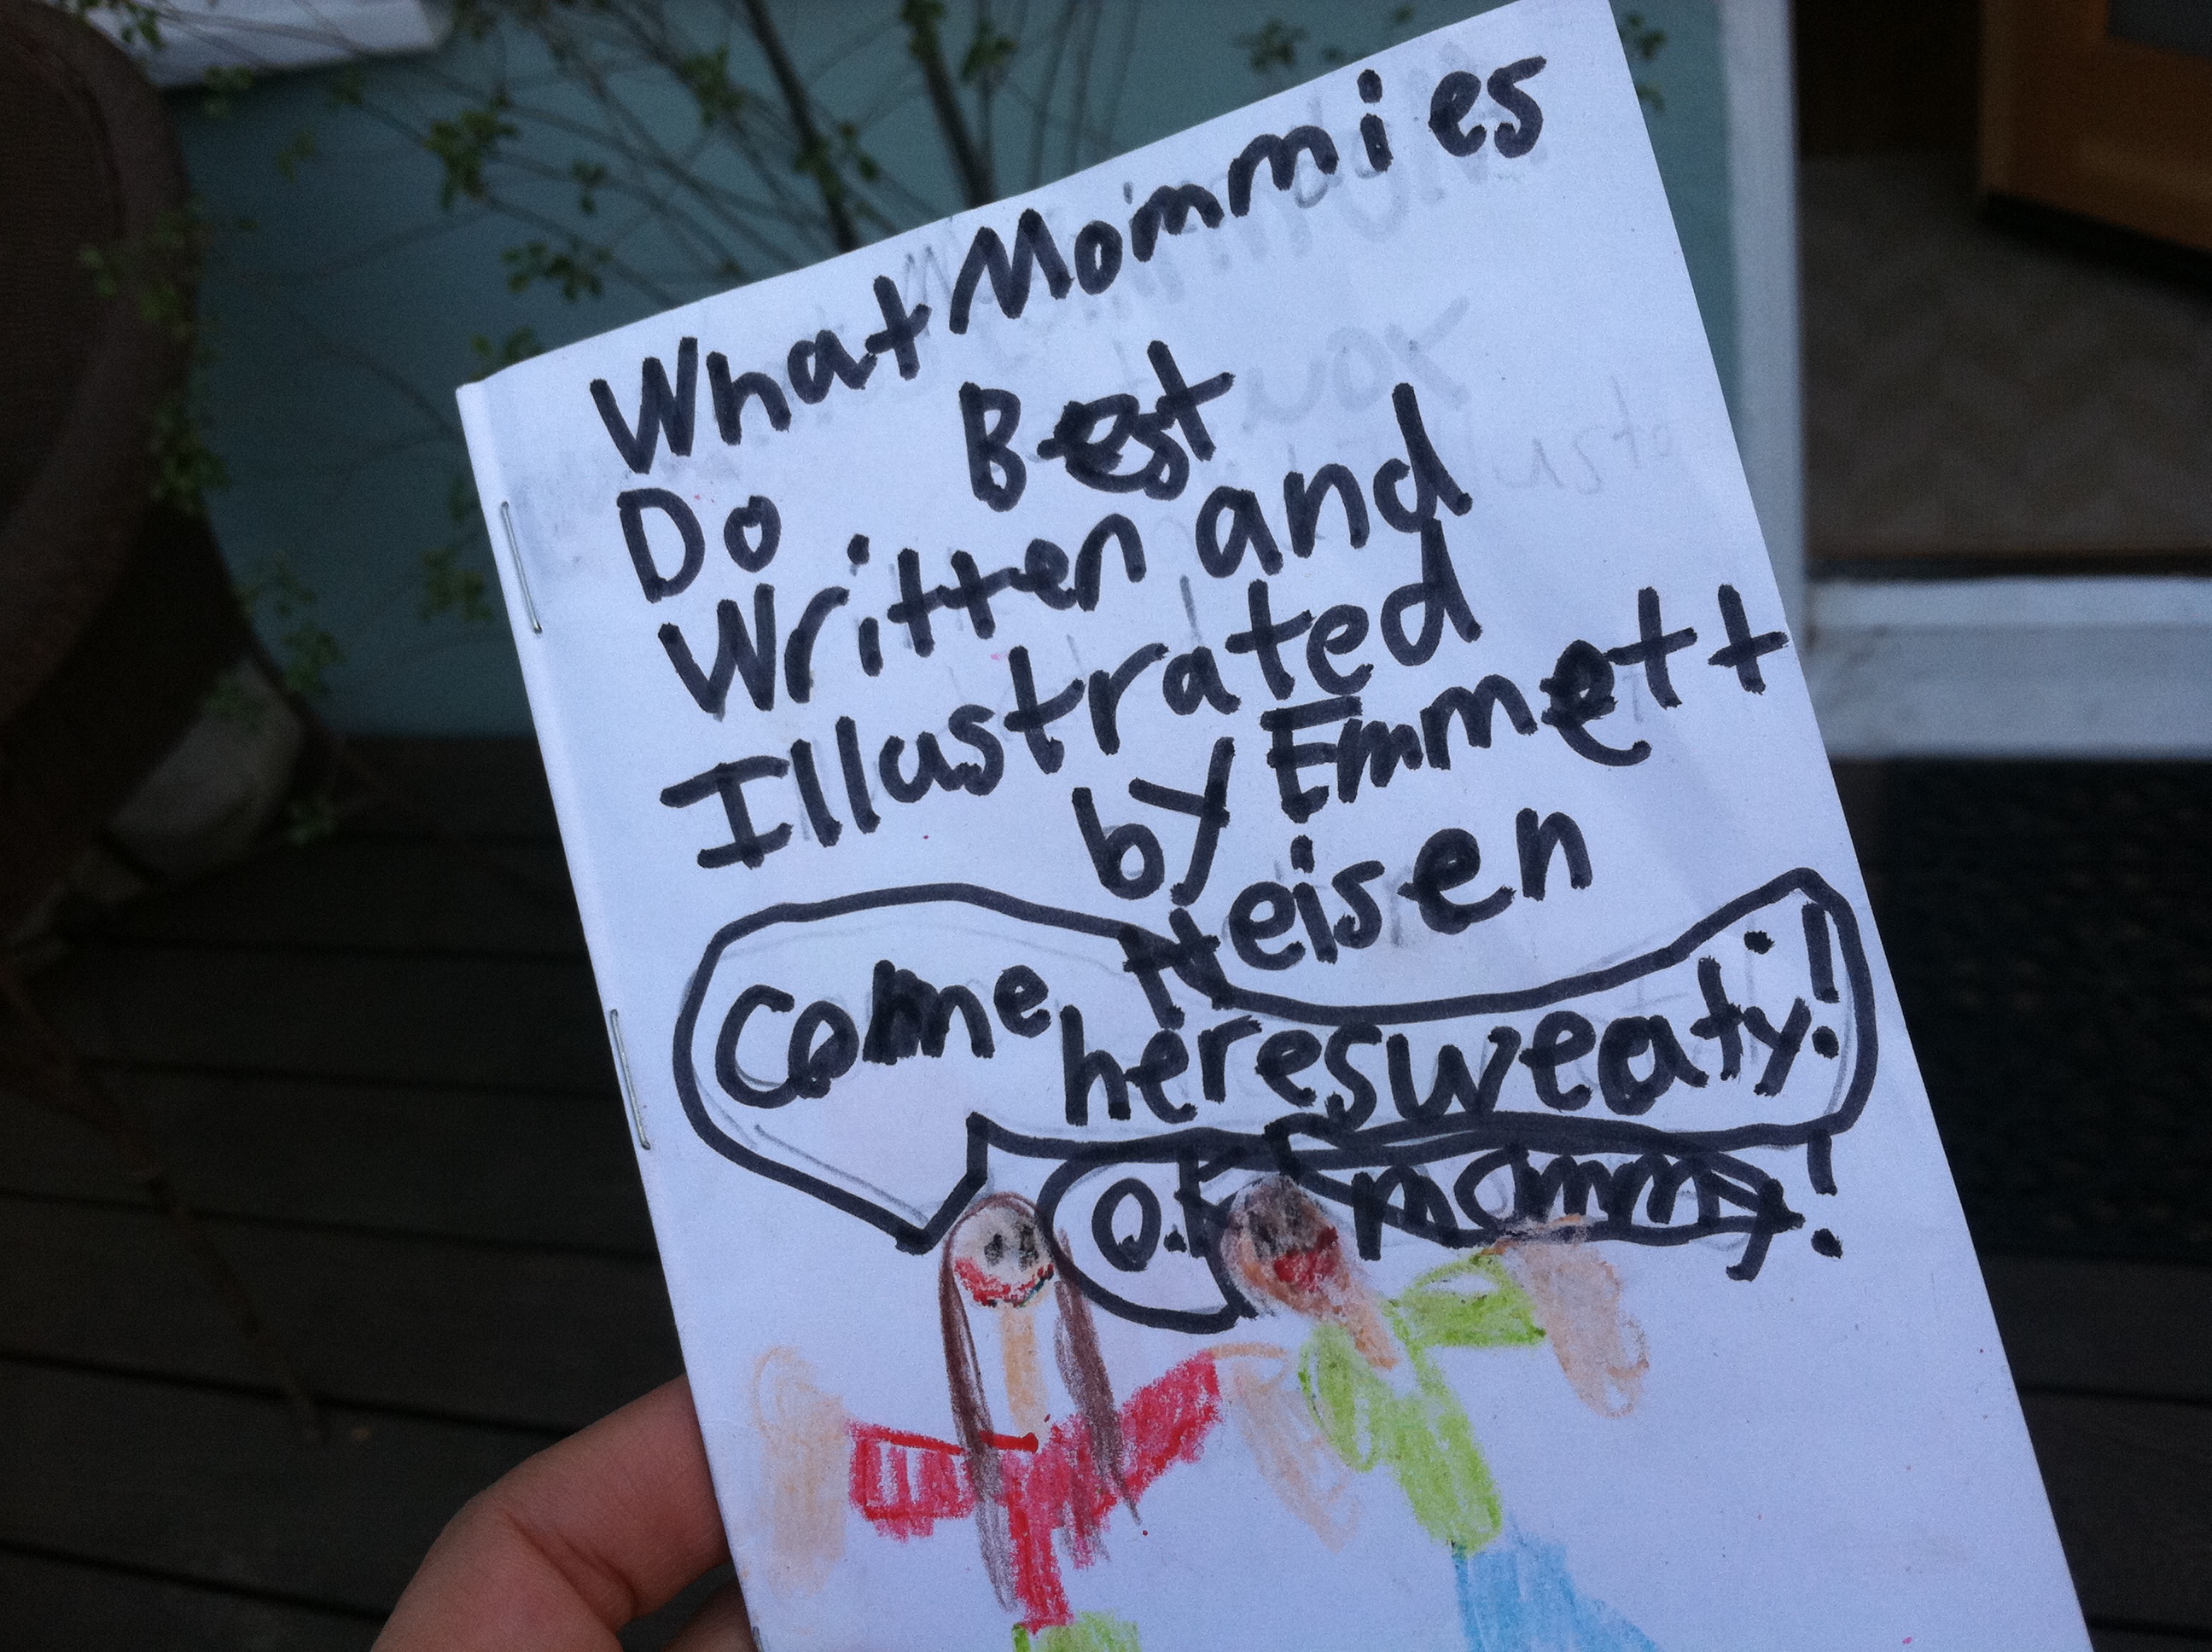 What Mommies
Do Best
Written and
Illustrated
by Emmett
Heisen
Come
here sweaty!
O.K mommy!